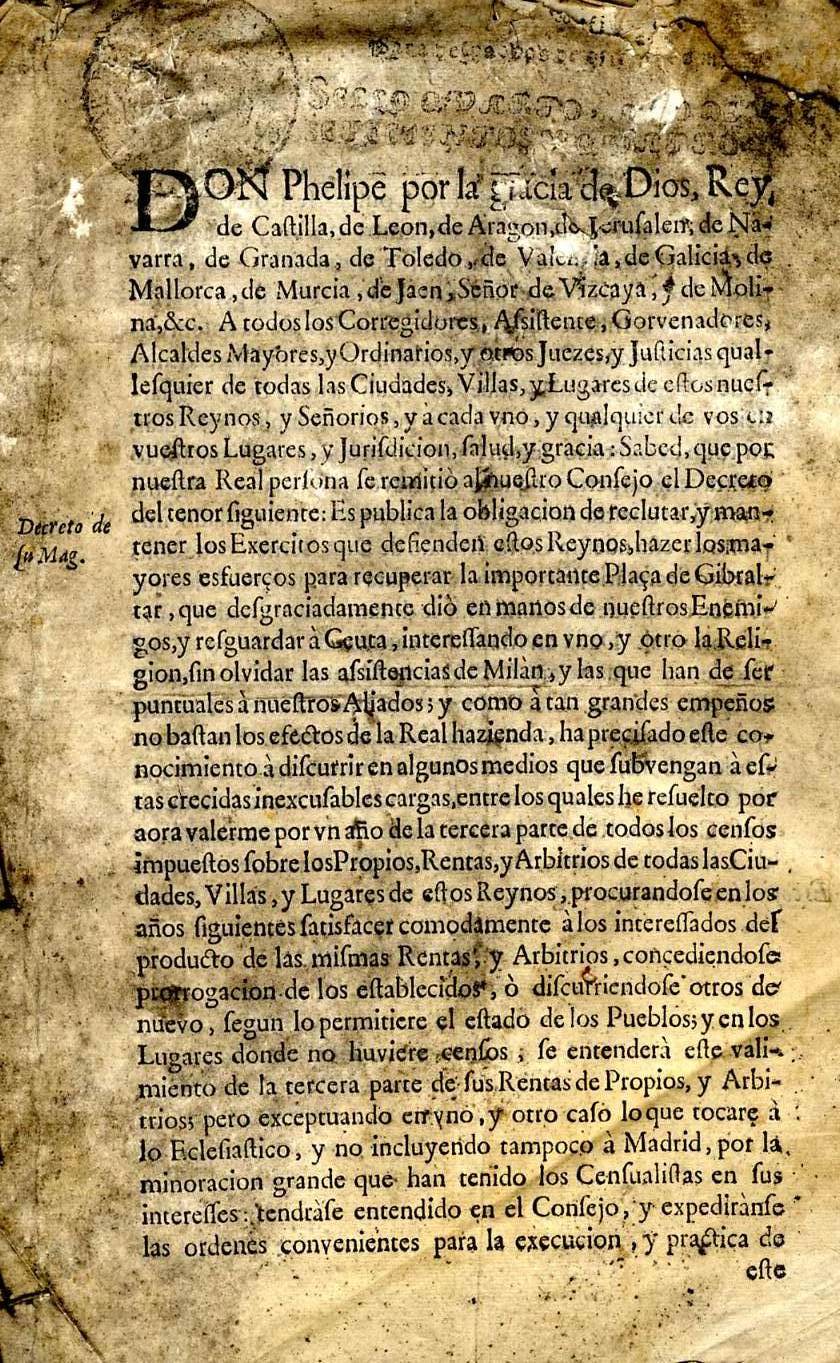 SELLO QVARTO, 
SETECIENTOS Y QVATRO
DON Phelipe por la gracia de Dios, Rey
de Caſtilla, de Leon, de Aragon, de Jeruſalem, de Na-
varra, de Granada, de Toledo, de Valencia, de Galicia, de
Mallorca, de Murcia, de Jaen, Señor de Vizcaya, y de Moli-
na,&c. A todos los Corregidores, Aſsiſtente, Gorvenadores,
Alcaldes Mayores, y Ordinarios, y otros Juezes, y Juſticias qual-
leſquier de todas las Ciudades, Villas, y Lugares de eſtos nueſ-
tros Reynos, y Señorios, y à cada vno, y qualquier de vos en
vueſtros Lugares, y Juriſdicion, ſalud, y gracia: Sabed, que por
nueſtra Real perſona ſe remitiò al nueſtro Conſejo el Decreto
Decreto de
ſu Mag.
del tenor ſiguiente: Es publica la obligacion de reclutar, y man-
tener los Exercitos que defienden eſtos Reynos, hazer los ma-
yores esfuerços para recuperar la importante Plaça de Gibral-
tar, que deſgraciadamente diò en manos de nueſtros Enemi-
gos, y reſguardar à Ceuta, intereſſando en vno, y otro la Reli-
gion, ſin olvidar las aſsiſtencias de Milàn, y las que han de ſer
puntuales à nueſtros Aliados; y como à tan grandes empeños
no baſtan los efectos de la Real hazienda, ha preciſado eſte co-
nocimiento à diſcurrir en algunos medios que ſubvengan à eſ-
tas crecidas inexcuſables cargas, entre los quales he reſuelto por
aora valerme por vn año de la tercera parte de todos los cenſos
impueſtos ſobre los Propios, Rentas, y Arbitrios de todas las Ciu-
dades, Villas, y Lugares de eſtos Reynos, procurandoſe en los
años ſiguientes ſatisfacer comodamente à los intereſſados del
producto de las miſmas Rentas, y Arbitrios, concediendoſe
prorrogacion de los eſtablecidos, ò diſcurriendoſe otros de
nuevo, ſegun lo permitiere el eſtado de los Pueblos; y en los
Lugares donde no huviere cenſos, se entenderà eſte vali-
miento de la tercera parte de ſus Rentas de Propios, y Arbi-
trios; pero exceptuando en vno, y otro caſo lo que tocare à
lo Ecleſiaſtico, y no incluyendo tampoco à Madrid, por la
minoracion grande que han tenido los Cenſualiſtas en ſus
intereſſes: tendràſe entendido en el Conſejo, y expediranſe
las ordenes convenientes para la execucion, y practica de
eſte